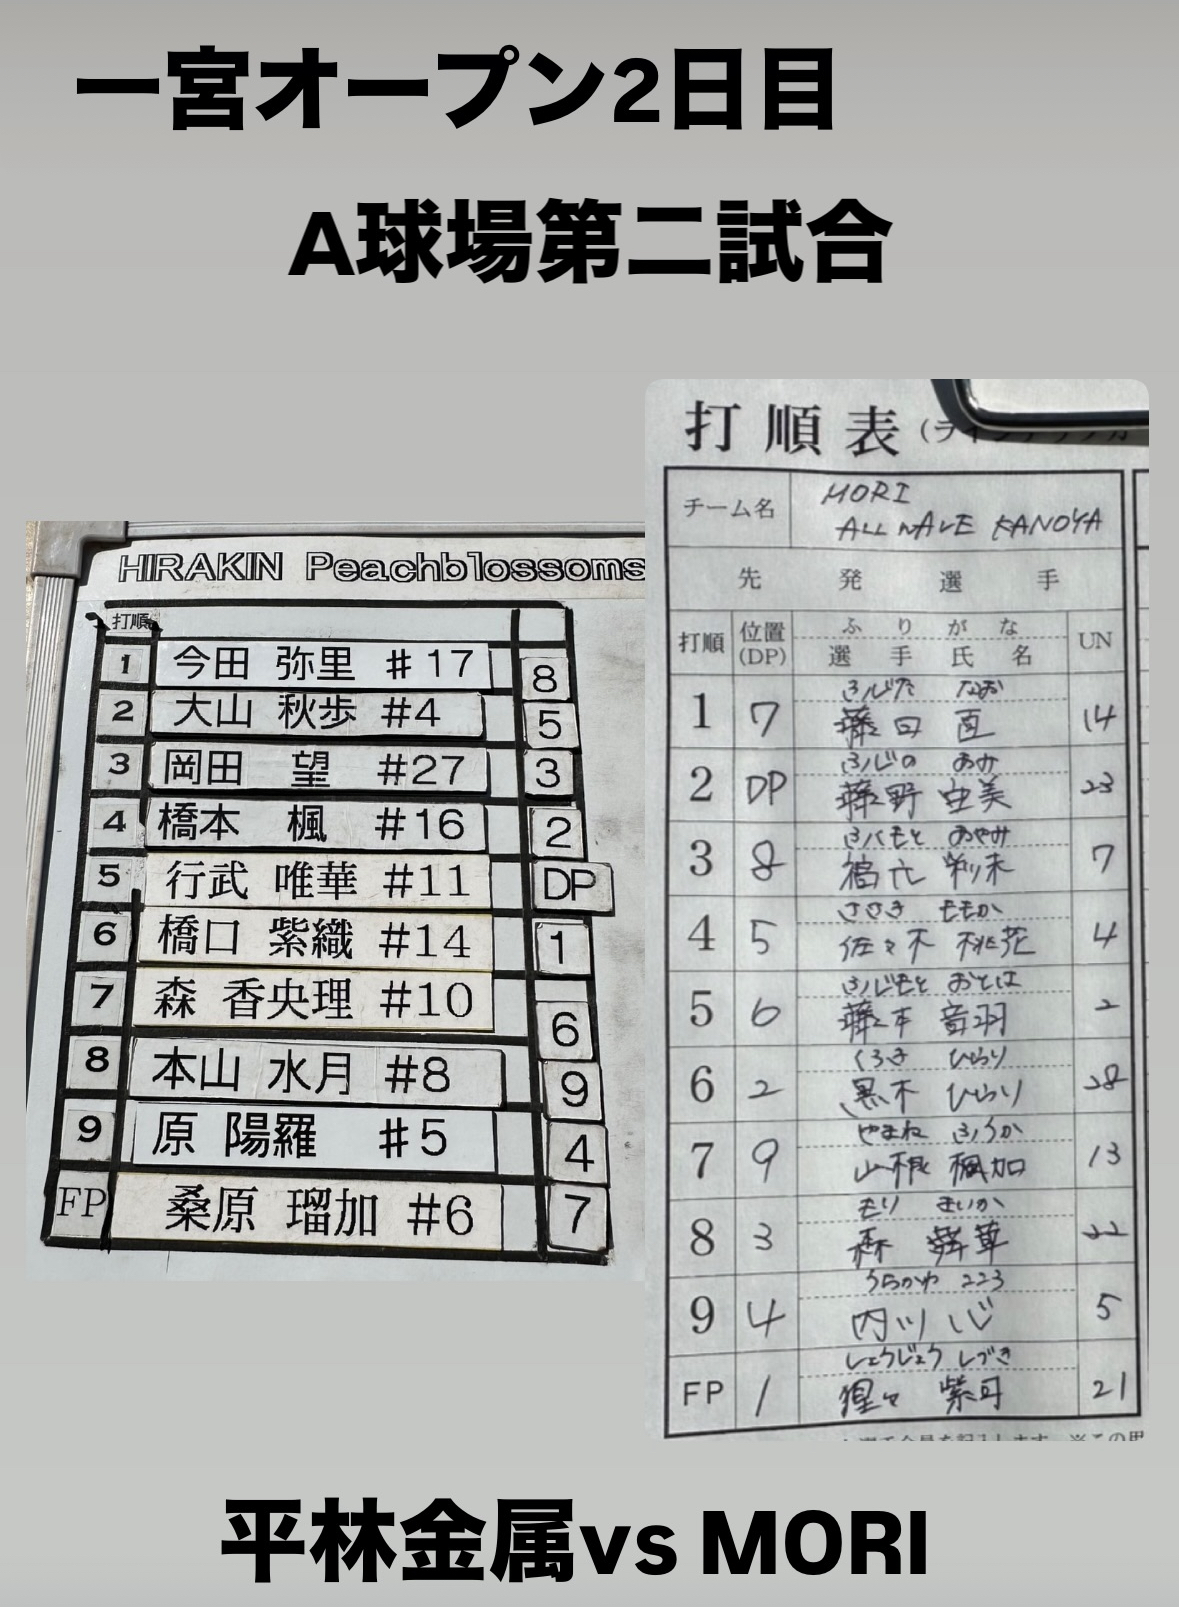 一宮オープン2日目
A球場第二試合
HIRAKIN Peachblossoms
打順
1 今田 弥里 #17 8
2 大山 秋歩 #4 5
3 岡田 望 #27 3
4 橋本 楓 #16 2
5 行武 唯華 #11 DP
6 橋口 紫織 #14 1
7 森 香央理 #10 6
8 本山 水月 #8 9
9 原 陽羅 #5 4
FP 桑原 瑠加 #6 7
打順表
チーム名 MORI
ALL WAVE KANOYA
先発選手
打順 位置(DP) ふりがな 選手氏名 UN
ふじた なお
1 7 藤田 直 14
ふじの あみ
2 DP 藤野 安美 23
ふくもと あやみ
3 8 7
ささき ももか
4 5 佐々木 桃花 4
ふじもと おとは
5 6 藤本 音羽 2
くろき ひらり
6 2 黒木 ひらり 28
やまね ふうか
7 9 山根 楓加 13
もり まいか
8 3 森 舞華 22
こころ
9 4 内川 心 5
しょうじょう しづき
FP 1 猩々 紫月 21
平林金属vs MORI